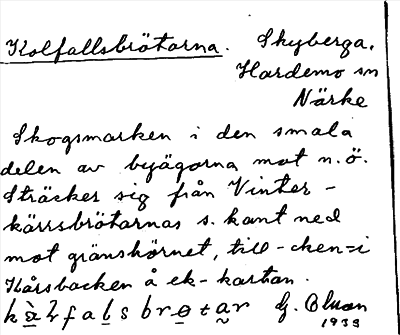 Kolfallsbrötarna. Skyberga,
Hardemo sn
Närke
Skogsmarken i den smala
delen av byägorna mot n.ö.
Sträcker sig från Vinter-
kärrsbrötarnas s. kant ned
mot gränshörnet, till -cken=i
Kårsbacken å ek-kartan.
G. Olson
1933